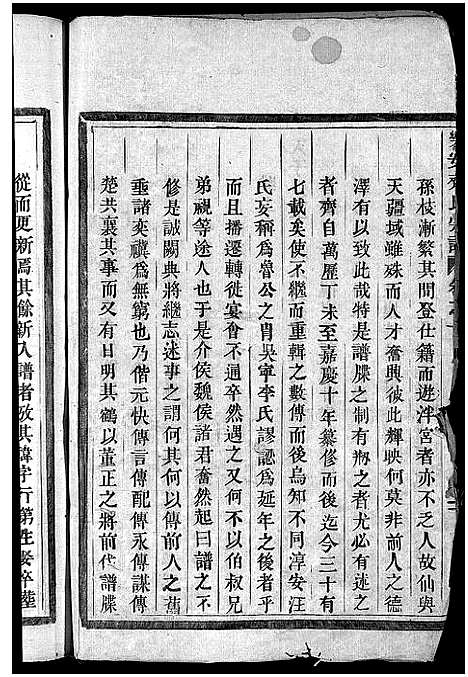 孫枝漸繁其間登仕籍而遊泮宮者亦不乏人故仙與
天疆域雖殊而人才奮興彼此輝映何莫非前人之德
澤有以致之特是譜牒之制有剏之者尤必有述之
者齊自萬厯丁未至嘉慶十年纂修而後迄今三十有
七載矣使不繼而重輯之數傳而後烏知不同淳安汪
氏妄稱爲魯公之胄吳寧李氏謬認爲延年之後者乎
而且播遷轉徙宴會不通卒然遇之又何不以伯叔兄
弟視等途人也于是介侯魏侯諸君奮然起曰譜之不
修是誠闕典將繼志述事之謂何其何以傳前人之舊
埀諸奕禩爲無窮也乃偕元快傳言傳配傳永傳謀傳
楚共襄其事而又有日明其鶴以董正之將前代譜牒
從而更新焉其餘新入譜者攷其諱字行第生娶卒塟